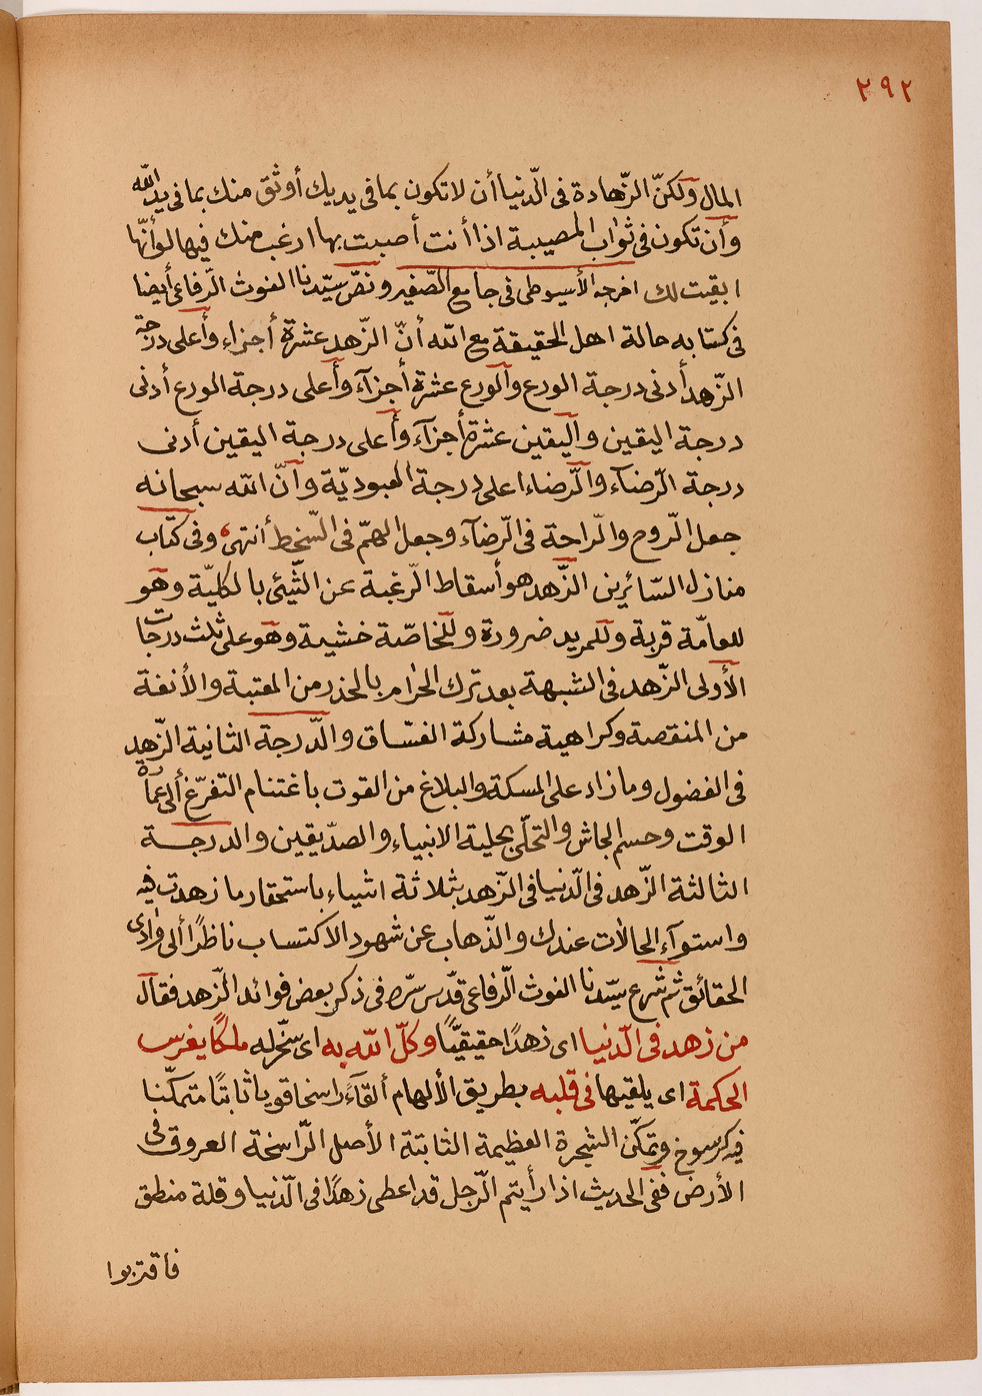 ٢٩٢
المال ولكنّ الزّهادة فى الّدنيا أن لا تكون بما فى يديك أوثق منك بما فى يد الله
وأن تكون فى ثواب المصيبة اذا أنت أصبت بها ارغب منك فيها لو أنّها
ابقيت لك اخرجه الأسيوطى فى جامع الصّغير ونصّ سيّدنا الغوث الرّفاعى أيضا
فى كتابه حالة اهل الحقيقة مع الله أنّ الزّهد عشرة أجزاء وأعلى درجة
الزّهد أدنى درجة الورع والورع عشرة أجزآء وأعلى درجة الورع أدنى
درجة اليقين واليقين عشرة أجزآء وأعلى درجة اليقين أدنى
درجة الرّضآء والرّضاء اعلى درجة العبوديّة وأنّ الله سبحانه
جعل الرّوح والرّاحة فى الرّضآء وجعل الهمّ فى السّخط أنتهى، وفى كتاب
منازل السّائرين الزّهد هو أسقاط الرّغبة عن الشّيئ بالكليّة وهو
للعامّة قربة وللمريد ضرورة وللخاصّة خشية وهو على ثلث درجات
الأولى الزّهد فى الشبهة بعد ترك الحرام بالحذر من المعتبة والأنفة
من المنقصة وكراهية مشاركة الفسّاق والدّرجة الثانية الزّهد
فى الفضول وما زاد على المسكة والبلاغ من القوت باغتنام التفرّغ ألى عمارة
الوقت وحسم الجاش والتحلّى بحلية الانبياء والصدّيقين والدرجة
الثالثة الزّهد فى الدّنيا فى الزّهد بثلاثة اشياء باستحقار ما زهدت فيه
واستوآء الحالات عندك والذّهاب عن شهود الاكتساب ناظرًا ألى وادى
الحقائق ثم شرع سيّدنا الغوث الرّفاعى قدّس سرّه فى ذكر بعض فوائد الزّهد فقال
من زهد فى الدّنيا اى زهدًا حقيقيًّا وكلّ الله به اى سخّر له ملكًا يغرس
الحكمة اى يلقيها فى قلبه بطريق الألهام ألقآءً راسخا قويا ثابتًا متمكّنا
فيه كرسوخ وتمكّن الشجرة العظيمة الثابتة الأصل الرّاسخة العروق فى
الأرض ففى الحديث اذا رأيتم الرّجل قد اعطى زهدًا فى الدّنيا وقلة منطق
فاقتربوا